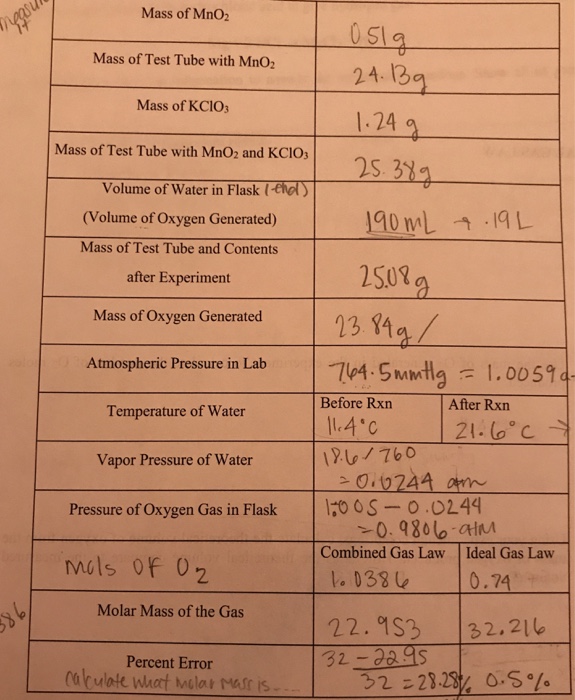 measure
it
Mass of MnO₂
0.51g
Mass of Test Tube with MnO₂
24.13g
Mass of KClO₃
1.24 g
Mass of Test Tube with MnO₂ and KClO₃
25.38g
Volume of Water in Flask (-ehol)
(Volume of Oxygen Generated)
190 mL → .19 L
Mass of Test Tube and Contents
after Experiment
25.08g
Mass of Oxygen Generated
23.84g /
Atmospheric Pressure in Lab
764.5mmHg = 1.0059 a
Temperature of Water
Before Rxn
After Rxn
11.4°C
21.6°C →
Vapor Pressure of Water
18.6 / 760
= 0.0244 atm
Pressure of Oxygen Gas in Flask
1.005 - 0.0244
= 0.9806 atm
mols of O₂
Combined Gas Law
Ideal Gas Law
1.0386
0.74
386
Molar Mass of the Gas
22.953
32.216
Percent Error
Calculate what molar mass is....
32 - 22.95
32 = 28.28%
0.5%